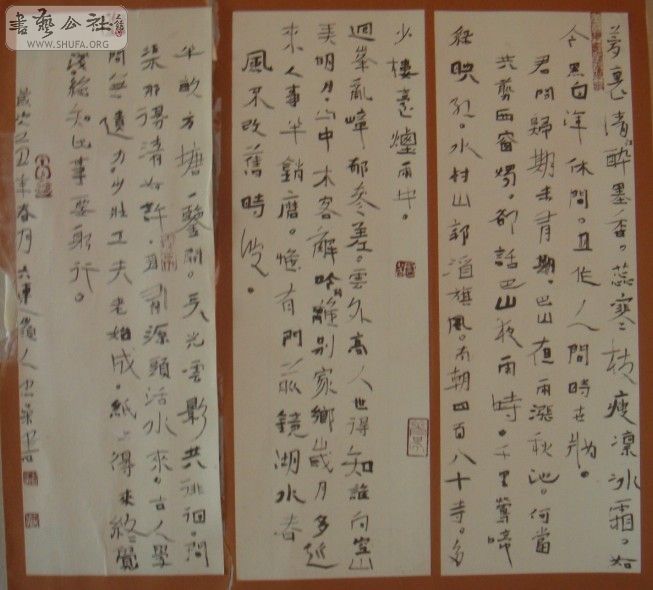 書藝公社
WWW.SHUFA.ORG
夢裏清。醉墨香。蕊寒枝瘦凛冰霜。如
今黑白渾休問。且作人間時世妝。
君問歸期未有期。巴山夜雨漲秋池。何當
共剪西窗燭。卻話巴山夜雨時。千里鶯啼
綠映紅。水村山郭酒旗風。南朝四百八十寺。多
少樓臺煙雨中。
迴峯亂嶂郁參差。雲外高人世得知。誰向空山
弄明月。山中木客解吟詩。離別家鄉歲月多。近
來人事半銷磨。惟有門前鏡湖水。春
風不改舊時波。
半畝方塘一鑒開。天光雲影共徘徊。問
渠那得清如許。爲有源頭活水來。古人學
問無遺力。少壯工夫老始成。紙上得來終覺
淺。絕知此事要躬行。
歲次己丑年春月